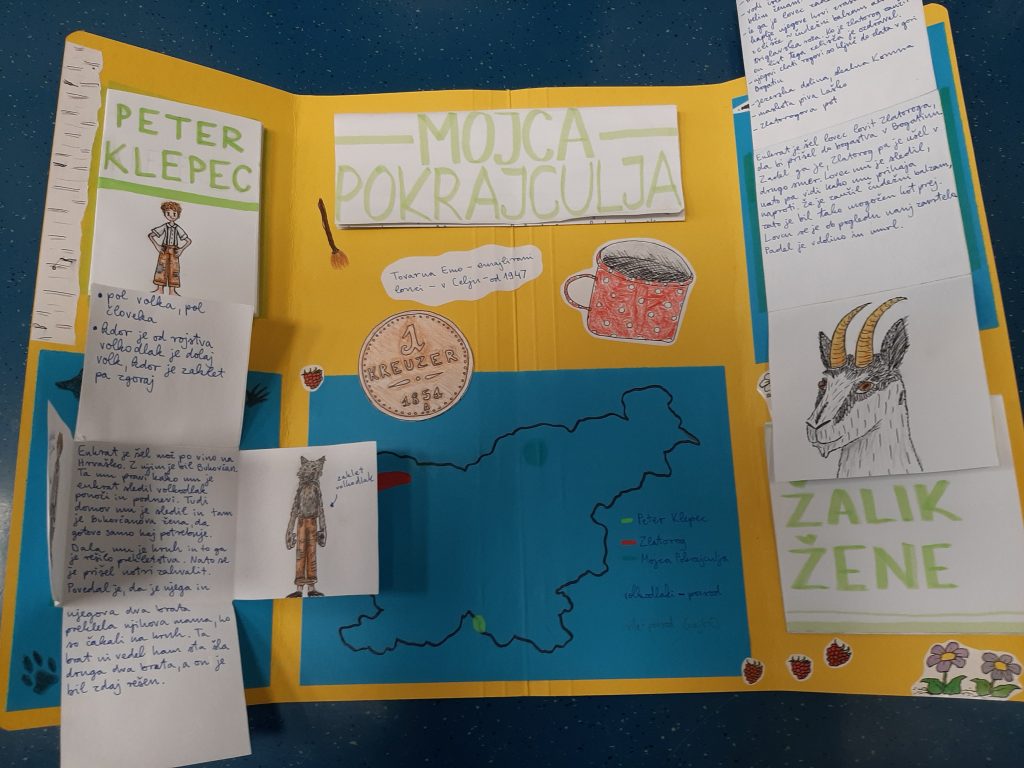 PETER
KLEPEC
• pol volka, pol
človeka
• kdor je od rojstva
volkodlak je dolaj
volk, kdor je zaklet
pa zgoraj
Enkrat je šel mož po vino na
Hrvaško. Z njim je bil Bukovčan.
Ta mu pravi kako mu je
enkrat sledil volkodlak
ponoči in podnevi. Tudi
domov mu je sledil in tam
je Bukovčanova žena, da
gotovo samo kaj potrebuje.
Dala mu je kruh in to ga
je rešilo prekletstva. Nato se
je prišel notri zahvalit.
Povedal je, da je njega in
njegova dva brata
preklela njihova mama, ko
so čakali na kruh. Ta
brat ni vedel kam sta šla
druga dva brata, a on je
bil zdaj rešen.
zaklet
volkodlak
MOJCA
POKRAJCULJA
Tovarna Emo - emajliram
lonci - v Celju - od 1947
1
KREUZER
1851
Peter Klepec
Zlatorog
Mojca Pokrajculja
volkodlaki - povsod
povsod
vodi
velim ženam
je ga je lovec
kaplje njegove krvi
čudežni balzam
Triglavska roža. Ko je Zlatorog zaužil
en list tega cvetišča je ozdravel.
- njegovi zlati rogovi so ključ do zlata v gori
Bogatin
- Jezerska dolina, dealna Komna
- maskota piva Laško
- Zlatorogova pot
Enkrat je šel lovec lovit Zlatoroga,
da bi prišel do bogastva v Bogatinu.
Zadel ga je, Zlatorog pa je ušel v
drugo smer. Lovec mu je sledil,
nato pa vidi kako mu prihaja
naproti. Že je zaužil čudežni balzam,
zato je bil tako mogočen kot prej.
Lovcu se je ob pogledu nanj zavrtelo.
Padel je v dolino in umrl.
ŽALIK
ŽENE